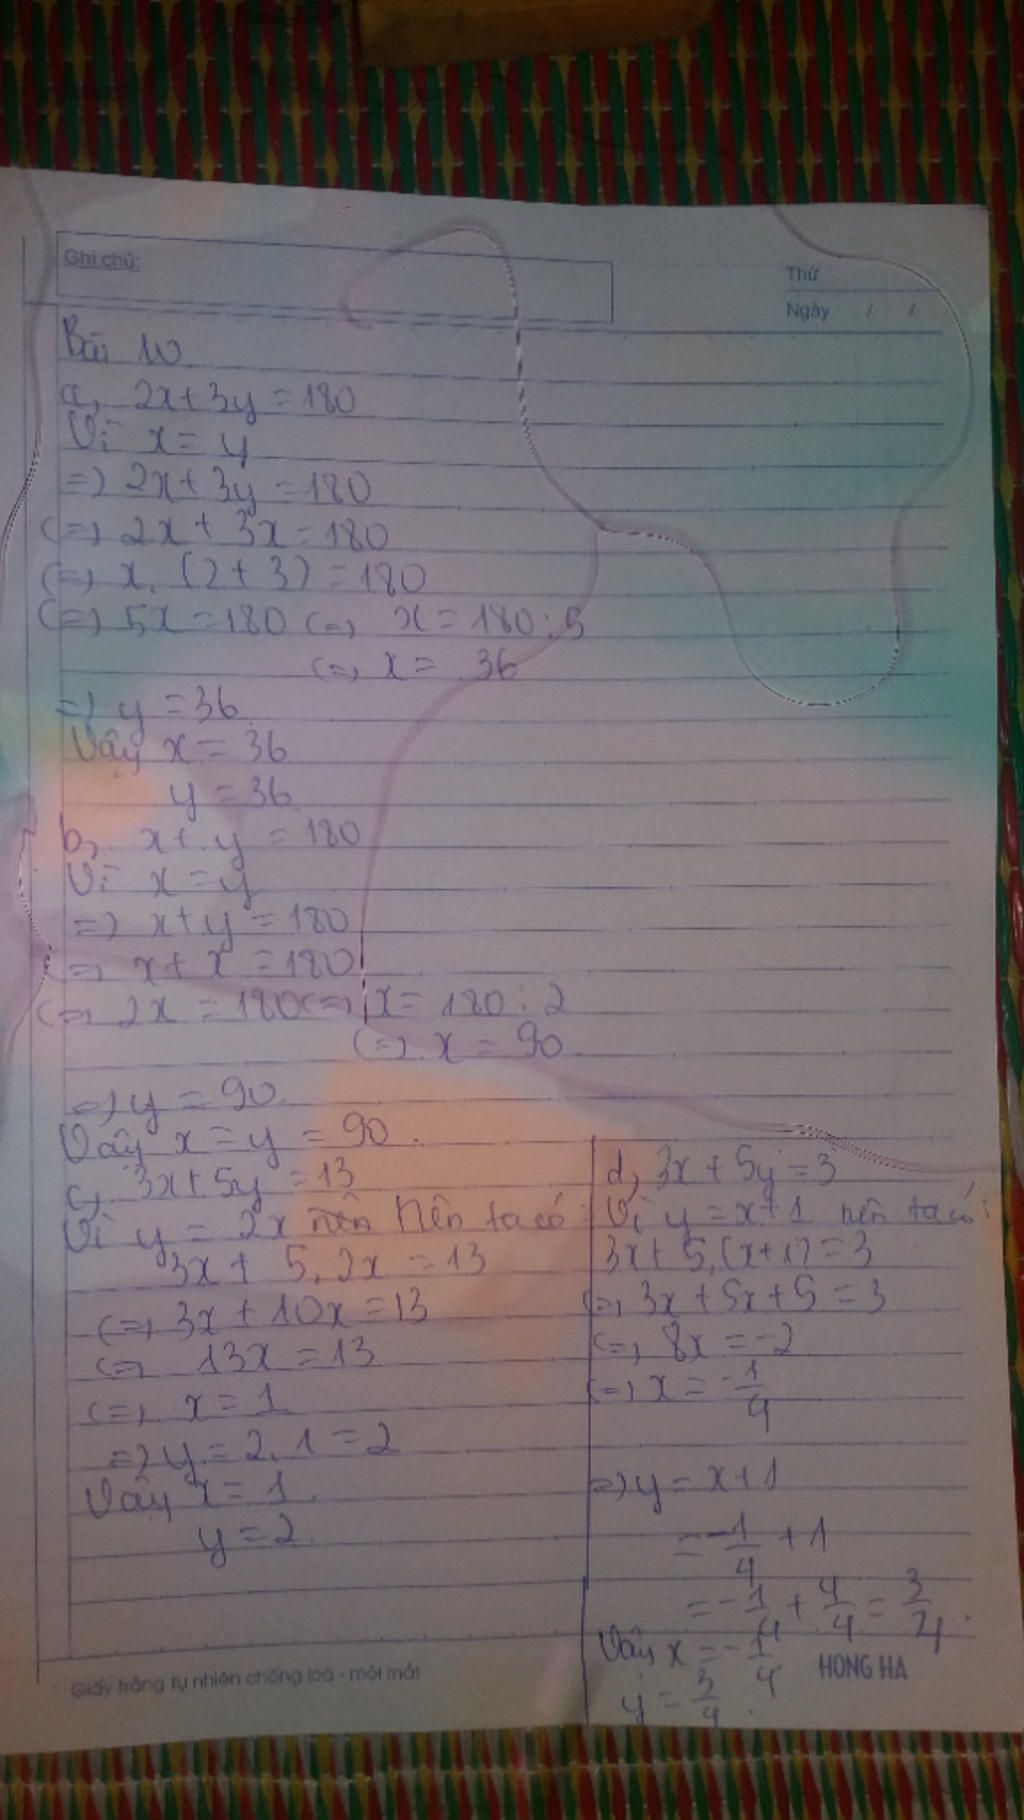 Ghi chú:
Thứ
Ngày / /
Bài 10
a, 2x+3y=180
Vì x=y
=> 2x+3y=180
<=> 2x+3x=180
<=> x.(2+3)=180
<=> 5x=180 <=> x=180:5
<=> x= 36
=> y=36
Vậy x=36
y=36
b, x+y=180
Vì x=y
=> x+y=180
<=> x+x=180
<=> 2x=180 <=> x=180:2
<=> x=90
=> y=90.
Vậy x=y=90.
c, 3x+5y=13
Vì y=2x nên Nên ta có:
3x+5.2x=13
<=> 3x+10x=13
<=> 13x=13
<=> x=1
=> y=2.1=2
Vậy x=1
y=2.
d, 3x+5y=3
Vì y=x+1 nên ta có:
3x+5.(x+1)=3
<=> 3x+5x+5=3
<=> 8x=-2
<=> x=-1/4
=> y=x+1
=-1/4+1
=-1/4+4/4=3/4.
Vậy x=-1/4
y=3/4.
Giấy trắng tự nhiên chống loá - mỏi mắt
HONG HA